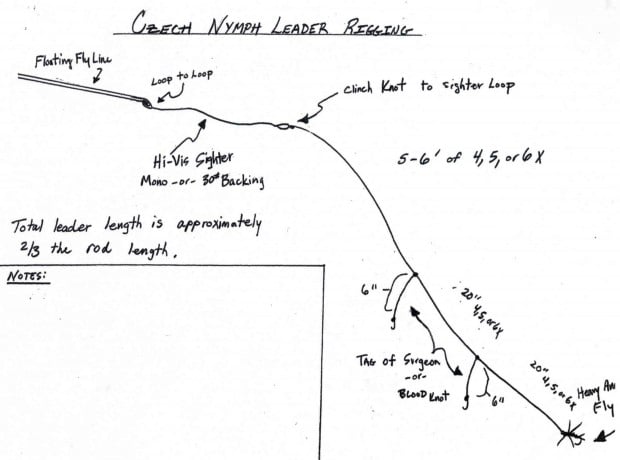 CZECH NYMPH LEADER RIGGING
Floating Fly Line
Loop to Loop
Clinch Knot to Sighter Loop
Hi-Vis Sighter
Mono -or- 30# Backing
5-6' of 4, 5, or 6X
Total leader length is approximately
2/3 the rod length.
NOTES:
6"
20"
4, 5, or 6X
TAG of Surgeon
-or-
BLOOD Knot
6"
20"
4, 5, or 6X
Heavy An
Fly